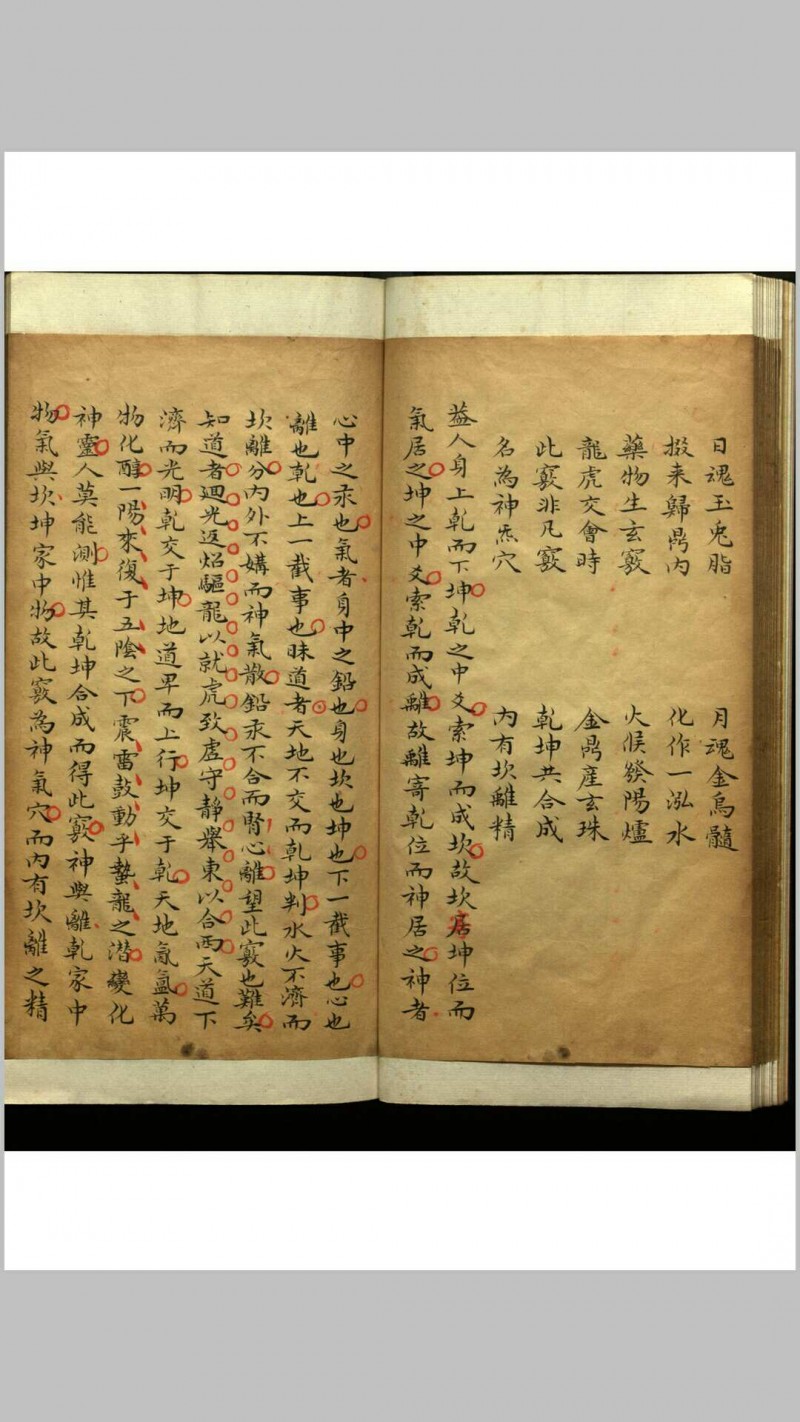 日魂玉兎脂　月魂金烏髓
掇来歸鼎内　化作一泓水
藥物生玄竅　火候發陽爐
龍虎交會時　金鼎産玄珠
此竅非凡竅　乾坤共合成
名為神炁穴　内有坎離精
葢人身上乾而下坤乾之中爻索坤而成坎故坎居坤位而
氣居之坤之中爻索乾而成離故離寄乾位而神居之神者
心中之汞也氣者身中之鉛也身也坎也坤也下一截事也心也
離也乾也上一截事也昧道者天地不交而乾坤判水火不濟而
坎離分内外不媾而神氣散鉛汞不合而腎心離望此竅也難矣
知道者廻光返炤驅龍以就虎致虛守静舉東以合西天道下
濟而光明乾交于坤地道卑而上行坤交于乾天地氤氲萬
物化醇一陽來復于五陰之下震雷鼓動乎蟄龍之潜變化
神靈人莫能測惟其乾坤合成而得此竅神與離乾家中
物氣與坎坤家中物故此竅為神氣穴而内有坎離之精